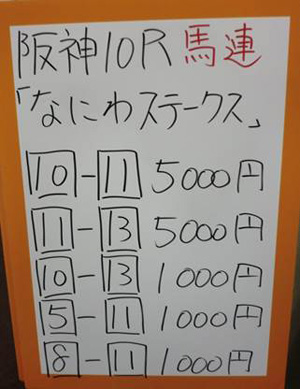 阪神10R 馬連
「なにわステークス」
10-11 5000円
11-13 5000円
10-13 1000円
5-11 1000円
8-11 1000円